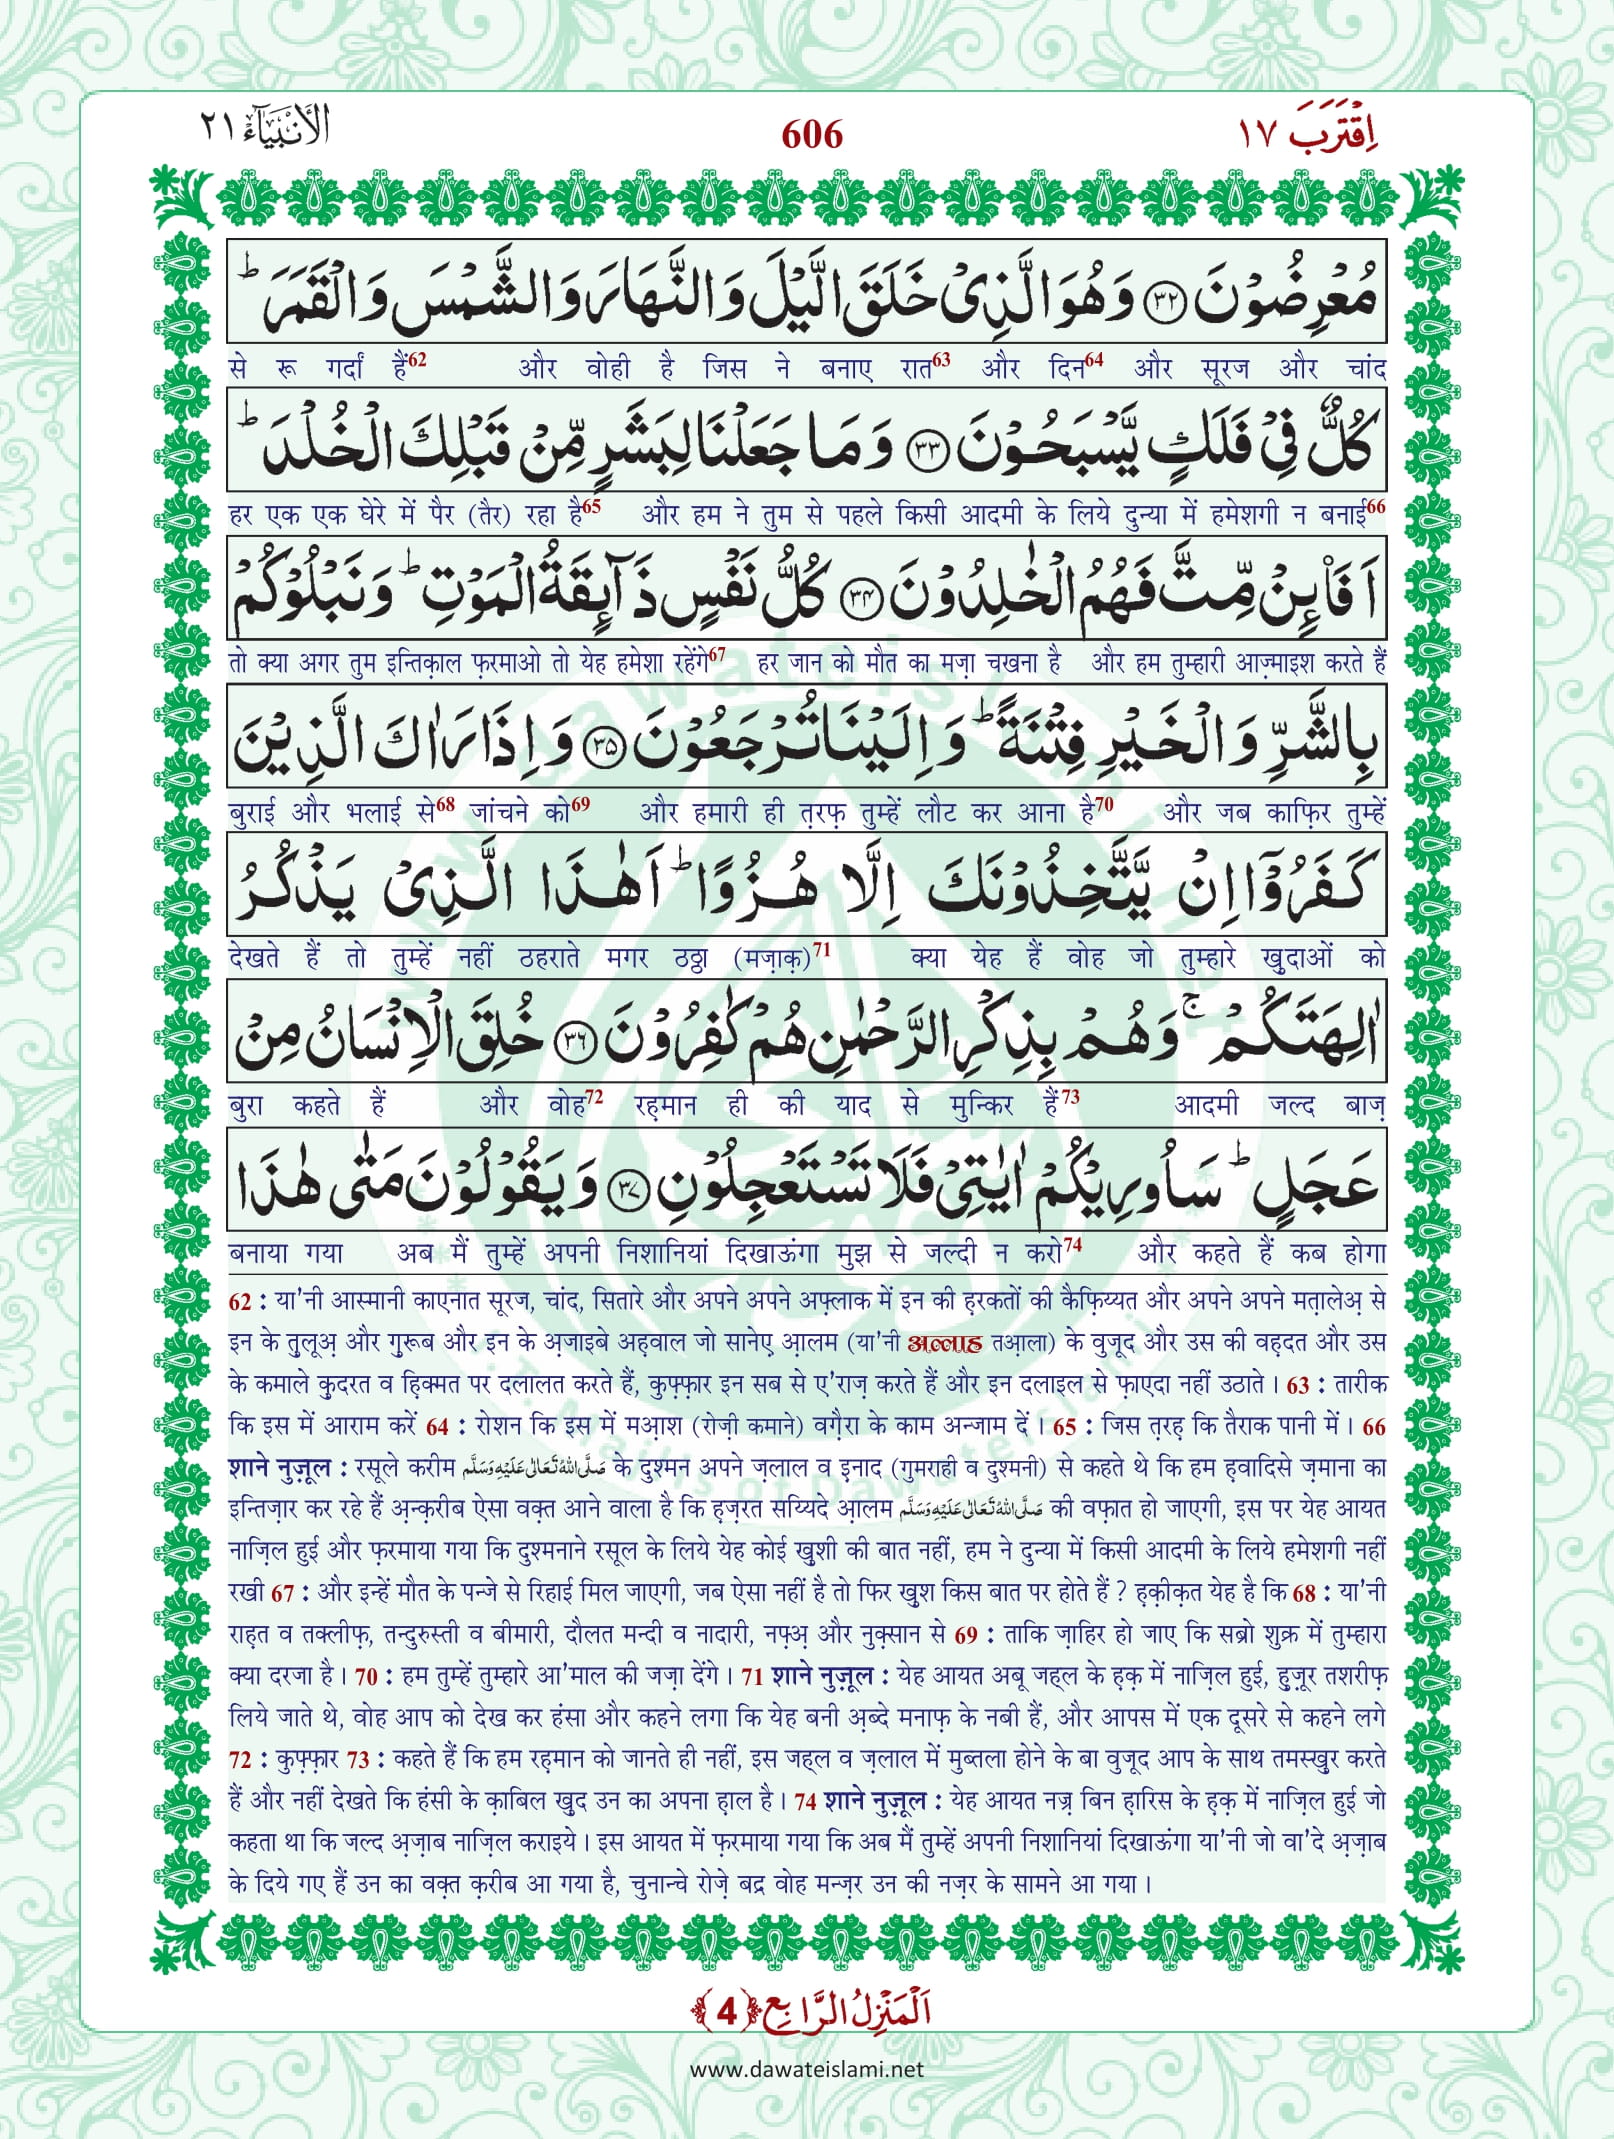 اِقْتَرَبَ ١٧
606
الْاَنْبِيَآء ٢١
مُعْرِضُوْنَ ﴿٣٢﴾ وَهُوَ الَّذِیْ خَلَقَ الَّیْلَ وَ النَّهَارَ وَ الشَّمْسَ وَ الْقَمَرَ ؕ
से रू गर्दां हैं62 और वोही है जिस ने बनाए रात63 और दिन64 और सूरज और चांद
كُلٌّ فِیْ فَلَكٍ یَّسْبَحُوْنَ ﴿٣٣﴾ وَ مَا جَعَلْنَا لِبَشَرٍ مِّنْ قَبْلِكَ الْخُلْدَ ؕ
हर एक एक घेरे में पैर (तैर) रहा है65 और हम ने तुम से पहले किसी आदमी के लिये दुन्या में हमेशगी न बनाई66
اَفَا۠ىِٕنْ مِّتَّ فَهُمُ الْخٰلِدُوْنَ ﴿٣٤﴾ كُلُّ نَفْسٍ ذَآىِٕقَةُ الْمَوْتِ ؕ وَ نَبْلُوْكُمْ
तो क्या अगर तुम इन्तिक़ाल फ़रमाओ तो येह हमेशा रहेंगे67 हर जान को मौत का मज़ा चखना है और हम तुम्हारी आज़्माइश करते हैं
بِالشَّرِّ وَ الْخَیْرِ فِتْنَةً ؕ وَ اِلَیْنَا تُرْجَعُوْنَ ﴿٣٥﴾ وَ اِذَا رَاٰكَ الَّذِیْنَ
बुराई और भलाई से68 जांचने को69 और हमारी ही त़रफ़ तुम्हें लौट कर आना है70 और जब काफ़िर तुम्हें
كَفَرُوْۤا اِنْ یَّتَّخِذُوْنَكَ اِلَّا هُزُوًا ؕ اَهٰذَا الَّذِیْ یَذْكُرُ
देखते हैं तो तुम्हें नहीं ठहराते मगर ठठ्ठा (मज़ाक़)71 क्या येह हैं वोह जो तुम्हारे ख़ुदाओं को
اٰلِهَتَكُمْ ۚ وَ هُمْ بِذِكْرِ الرَّحْمٰنِ هُمْ كٰفِرُوْنَ ﴿٣٦﴾ خُلِقَ الْاِنْسَانُ مِنْ
बुरा कहते हैं और वोह72 रह़मान ही की याद से मुन्किर हैं73 आदमी जल्द बाज़
عَجَلٍ ؕ سَاُورِیْكُمْ اٰیٰتِیْ فَلَا تَسْتَعْجِلُوْنِ ﴿٣٧﴾ وَ یَقُوْلُوْنَ مَتٰى هٰذَا
बनाया गया अब मैं तुम्हें अपनी निशानियां दिखाऊंगा मुझ से जल्दी न करो74 और कहते हैं कब होगा
62 : या'नी आस्मानी काएनात सूरज, चांद, सितारे और अपने अपने अफ़्लाक में इन की ह़रकतों की कैफ़िय्यत और अपने अपने मत़ालेअ़ से
इन के त़ुलूअ़ और ग़ुरूब और इन के अ़जाइबे अह़वाल जो सानेए़ आ़लम (या'नी अल्लाह तआ़ला) के वुजूद और उस की वह़दत और उस
के कमाले क़ुदरत व ह़िक्मत पर दलालत करते हैं, कुफ़्फ़ार इन सब से ए'राज़ करते हैं और इन दलाइल से फ़ाएदा नहीं उठाते । 63 : तारीक
कि इस में आराम करें 64 : रोशन कि इस में मआ़श (रोज़ी कमाने) वग़ैरा के काम अन्जाम दें । 65 : जिस त़रह़ कि तैराक पानी में । 66
शाने नुज़ूल : रसूले करीम صَلَّی اللّٰہُ تَعَالٰی عَلَیْہِ وَسَلَّم के दुश्मन अपने ज़लाल व इ़नाद (गुमराही व दुश्मनी) से कहते थे कि हम ह़वादिसे ज़माना का
इन्तिज़ार कर रहे हैं अ़न्क़रीब ऐसा वक़्त आने वाला है कि ह़ज़रत सय्यिदे आ़लम صَلَّی اللّٰہُ تَعَالٰی عَلَیْہِ وَسَلَّم की वफ़ात हो जाएगी, इस पर येह आयत
नाज़िल हुई और फ़रमाया गया कि दुश्मनाने रसूल के लिये येह कोई ख़ुशी की बात नहीं, हम ने दुन्या में किसी आदमी के लिये हमेशगी नहीं
रखी 67 : और इन्हें मौत के पन्जे से रिहाई मिल जाएगी, जब ऐसा नहीं है तो फिर ख़ुश किस बात पर होते हैं ? ह़क़ीक़त येह है कि 68 : या'नी
राह़त व तक्लीफ़, तन्दुरुस्ती व बीमारी, दौलत मन्दी व नादारी, नफ़्अ़ और नुक़्सान से 69 : ताकि ज़ाहिर हो जाए कि सब्रो शुक्र में तुम्हारा
क्या दरजा है । 70 : हम तुम्हें तुम्हारे आ'माल की जज़ा देंगे । 71 शाने नुज़ूल : येह आयत अबू जह्ल के ह़क़ में नाज़िल हुई, हुज़ूर तशरीफ़
लिये जाते थे, वोह आप को देख कर हंसा और कहने लगा कि येह बनी अ़ब्दे मनाफ़ के नबी हैं, और आपस में एक दूसरे से कहने लगे
72 : कुफ़्फ़ार 73 : कहते हैं कि हम रह़मान को जानते ही नहीं, इस जह्ल व ज़लाल में मुब्तला होने के बा वुजूद आप के साथ तमस्ख़ुर करते
हैं और नहीं देखते कि हंसी के क़ाबिल ख़ुद उन का अपना ह़ाल है । 74 शाने नुज़ूल : येह आयत नज़्र बिन ह़ारिस के ह़क़ में नाज़िल हुई जो
कहता था कि जल्द अ़ज़ाब नाज़िल कराइये । इस आयत में फ़रमाया गया कि अब मैं तुम्हें अपनी निशानियां दिखाऊंगा या'नी जो वा'दे अ़ज़ाब
के दिये गए हैं उन का वक़्त क़रीब आ गया है, चुनान्चे रोज़े बद्र वोह मन्ज़र उन की नज़र के सामने आ गया ।
اَلْمَنْزِلُ الرَّابِع ﴿4﴾
www.dawateislami.net